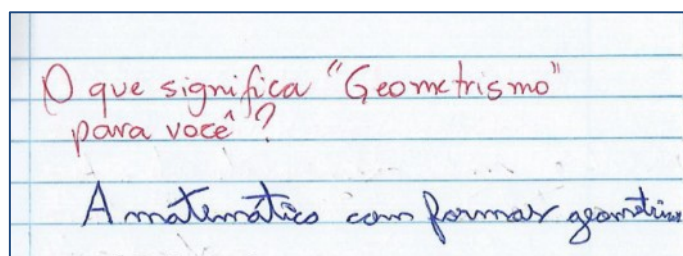 O que significa "Geometrismo"
para você?
A matemática com formas geométricas